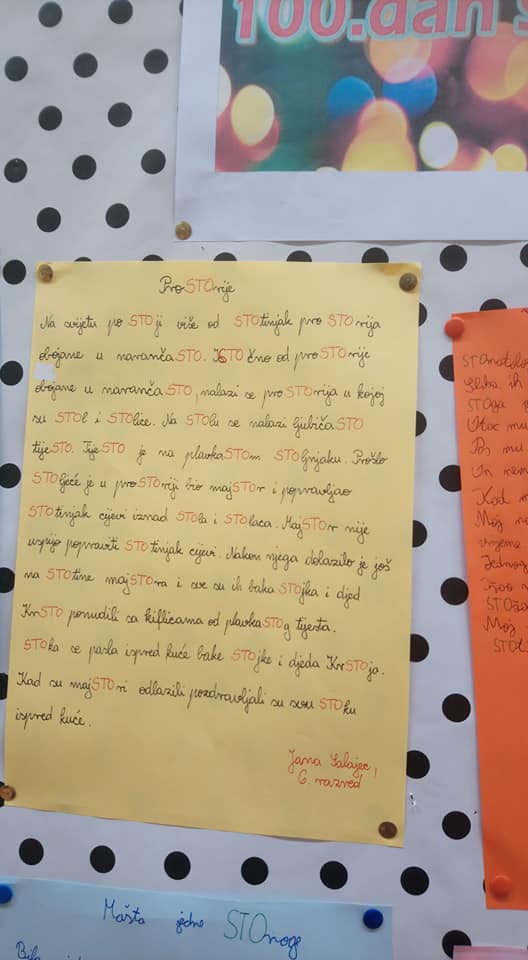 100.dan
ProSTOrije
Na svijetu poSTOji više od STOtinjak proSTOrija
obojane u narančaSTO. ISTOčno od proSTOrije
obojane u narančaSTO, nalazi se proSTOrija u kojoj
su STOl i STOlice. Na STOlu se nalazi ljubičaSTO
tijeSTO. TijeSTO je na plavkaSTOm STOljnjaku. Prošlo
STOljeće je u proSTOriji bio majSTOr i popravljao
STOtinjak cijevi iznad STOla i STOlaca. MajSTOr nije
uspio popraviti STOtinjak cijevi. Nakon njega dolazilo je još
na STOtine majSTOra i sve su ih baka STOjka i djed
KrSTO ponudili sa kiflicama od plavkaSTOg tijesta.
STOka se pasla ispred kuće bake STOjke i djeda KrSTOja.
Kad su majSTOri odlazili pozdravljali su svu STOku
ispred kuće.
Jana Salajec,
6. razred
STOga
Otac mu
Pas mu
Kad
Moj
vrijeme
Jednog
Moj
Mašta jedne STOnoge